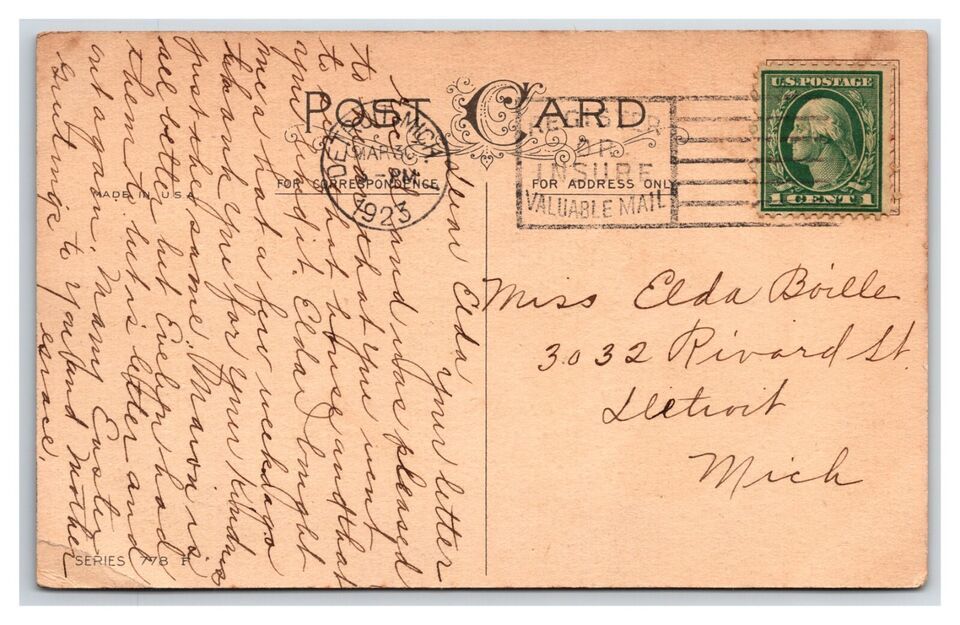 POST CARD
FOR CORRESPONDENCE
FOR ADDRESS ONLY
MADE IN U.S.A.
SERIES 778 F
U.S. POSTAGE
1 CENT 1
DETROIT, MICH
MAR 30
PM
1923
REGISTER
OR
INSURE
VALUABLE MAIL
Miss Elda Boille
3032 Rivard St.
Detroit
Mich
Dear Elda your letter
received and was pleased
to hear that you went
to that house and that
you got it. Elda I bought
me a hat a few weeks ago
thank you for your kindness
just the same. Marion is
all better but Evelyn had
them to but is better and
out again. Many Easter
Greetings to you and Mother